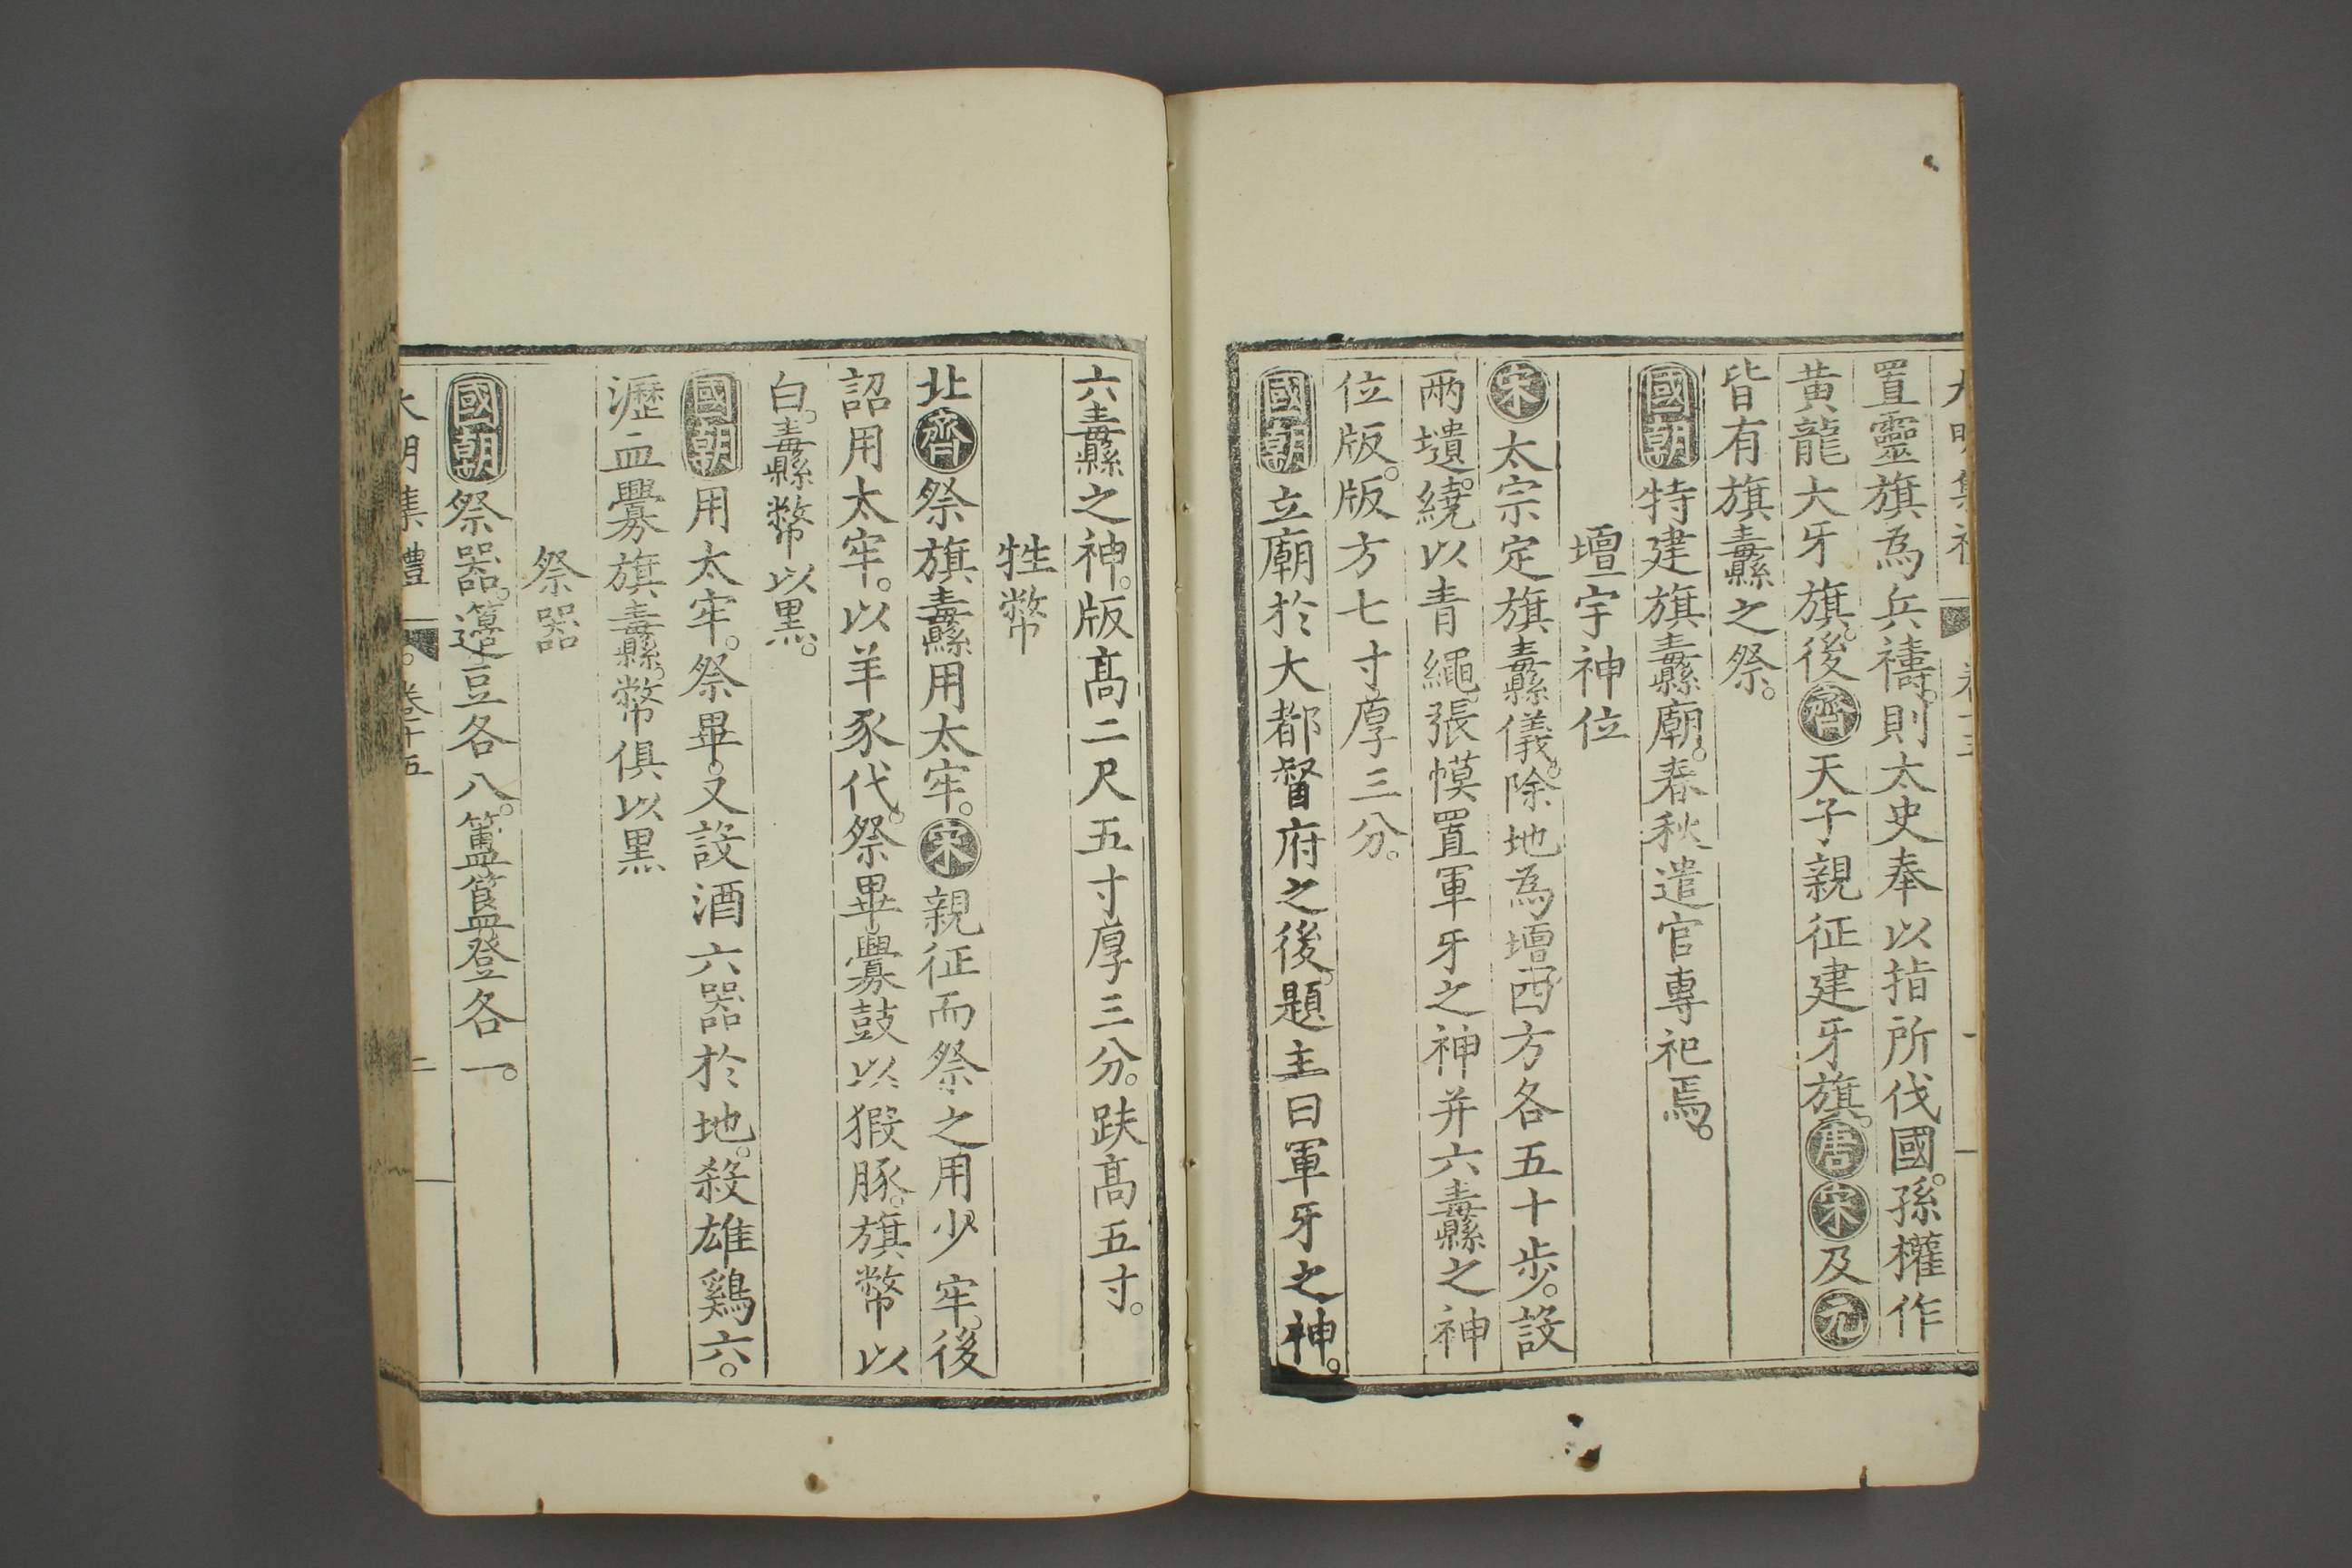 置靈旗為兵禱。則太史奉以指所伐國。孫權作
黃龍大牙旗。後齊天子親征建牙旗。唐宋及元
皆有旗纛之祭。
國朝特建旗纛廟。春秋遣官專祀焉。
壇宇神位
宋太宗定旗纛儀。除地為壇。西方各五十步。設
兩壝。繞以青繩。張幙置軍牙之神并六纛之神
位版。版方七寸厚三分。
國朝立廟於大都督府之後。題主曰軍牙之神。
六纛之神。版高二尺五寸厚三分。趺高五寸。
牲幣
北齊祭旗纛用太牢。宋親征而祭之用少牢。後
詔用太牢。以羊豕代。祭畢釁鼓以豭豚。旗幣以
白。纛幣以黑。
國朝用太牢。祭畢。又設酒六器於地。殺雄鷄六。
瀝血釁旗纛。幣俱以黑
祭器
國朝祭器。籩豆各八。簠簋登各一。
大明集禮 卷三十五 二